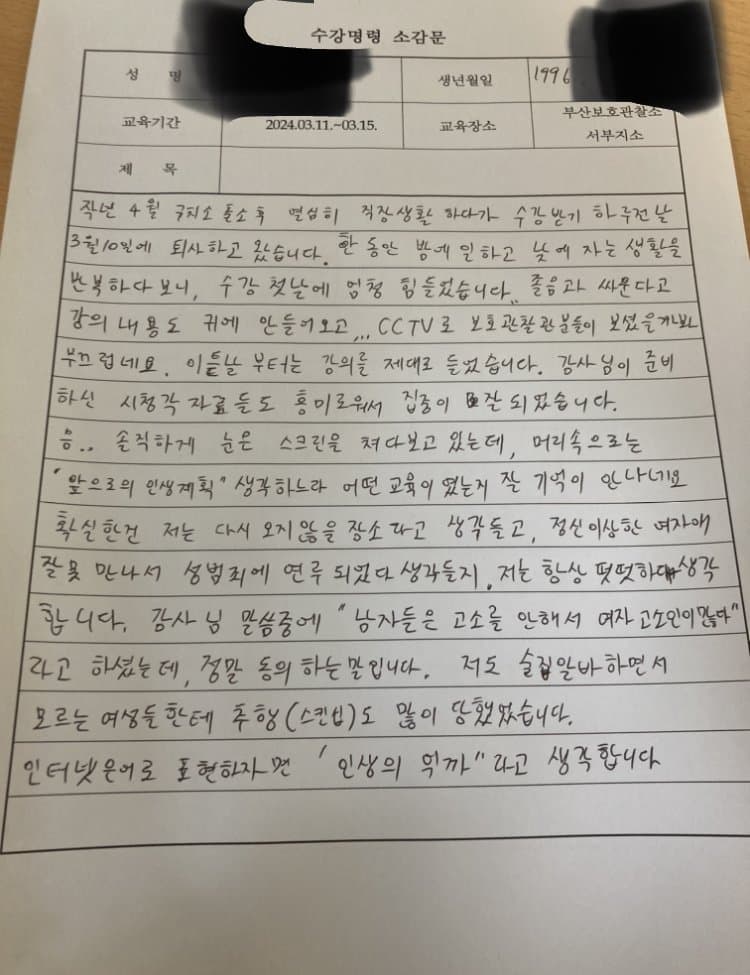 수강명령 소감문
성 명 생년월일 1996
교육기간 2024.03.11.~03.15. 교육장소 부산보호관찰소 서부지소
제 목
작년 4월 구치소 출소 후 열심히 직장생활 하다가 수강받기 하루전날
3월10일에 퇴사하고 왔습니다. 한 동안 밤에 일하고 낮에 자는 생활을
반복하다 보니, 수강 첫날에 엄청 힘들었습니다.. 졸음과 싸운다고
강의 내용도 귀에 안들어오고,,, CCTV로 보호관찰관분들이 보셨을까봐
부끄럽네요. 이튿날 부터는 강의를 제대로 들었습니다. 강사님이 준비
하신 시청각 자료들도 흥미로워서 집중이 잘 되었습니다.
음.. 솔직하게 눈은 스크린을 쳐다보고 있는데, 머리속으로는
"앞으로의 인생계획" 생각하느라 어떤 교육이였는지 잘 기억이 안나네요
확실한건 저는 다시 오지않을 장소라고 생각들고, 정신이상한 여자애
잘못 만나서 성범죄에 연루 되었다 생각들지, 저는 항상 떳떳하다 생각
합니다. 강사님 말씀중에 "남자들은 고소를 안해서 여자 고소인이 많다"
라고 하셨는데, 정말 동의 하는 말입니다. 저도 술집알바 하면서
모르는 여성들한테 추행(스킨십)도 많이 당했었습니다.
인터넷은어로 표현하자면 '인생의 억까"라고 생각합니다